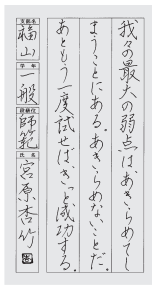 我々の最大の弱点は、あきらめてし
まうことにある。あきらめないことだ。
あともう一度試せば、きっと成功する。
支部名
福山
学年
一般
段級位
師範
氏名
宮原杏竹